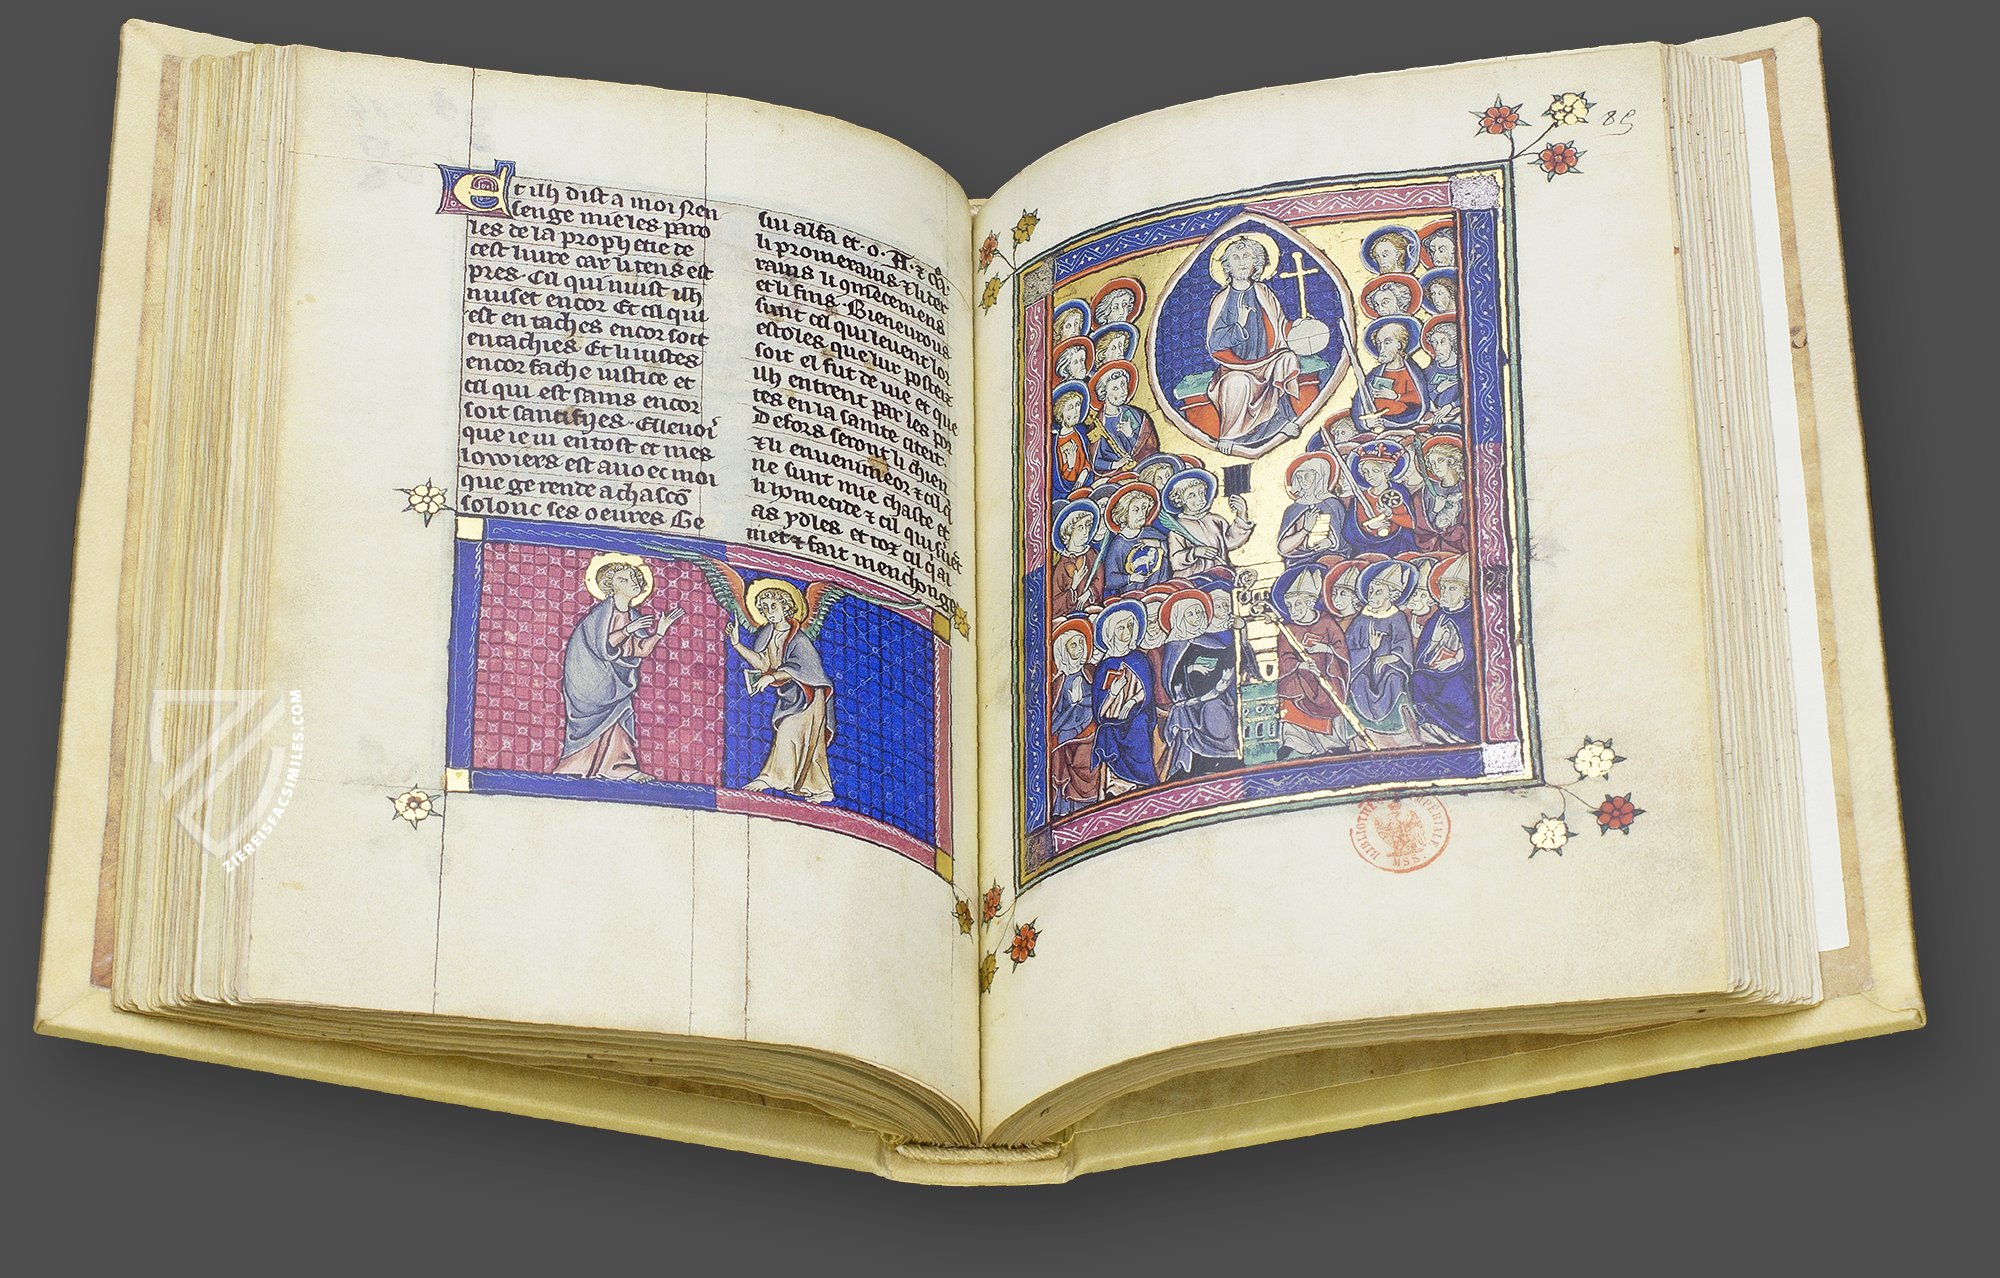 Et ilh dist a moi Nen
senge mie les paro
les de la prophetie de
cest liure car li tens est
pres. Cil qui nuist ilh
nuiset encor Et cil qui
est en taches encor soit
entachies Et li iustes
encor fache iustice et
cil qui est sains encor
soit santifiyes. Ellenoī
que ie ui en tost et mes
lowiers est auoec moi
que ge rende a chascō
solonc ses oeures Ge
sui alfa et .o. A. et
li promerains et li der
rains li
et li fins. Bieneurous
sunt cil qui leuent lor
estoles que lur posteiz
soit el fut de uie et que
ilh entrent par les por
tes en la sainte citeit.
Defors seront li chien
et li enuenimeor et cil qi
ne sunt mie chaste et
li homecide et cil qui
as ydles et tot cil q ai
met et fait menchonge
85
BIBLIOTHÈQUE IMPÉRIALE
MSS.
ZIEREISFACSIMILES.COM